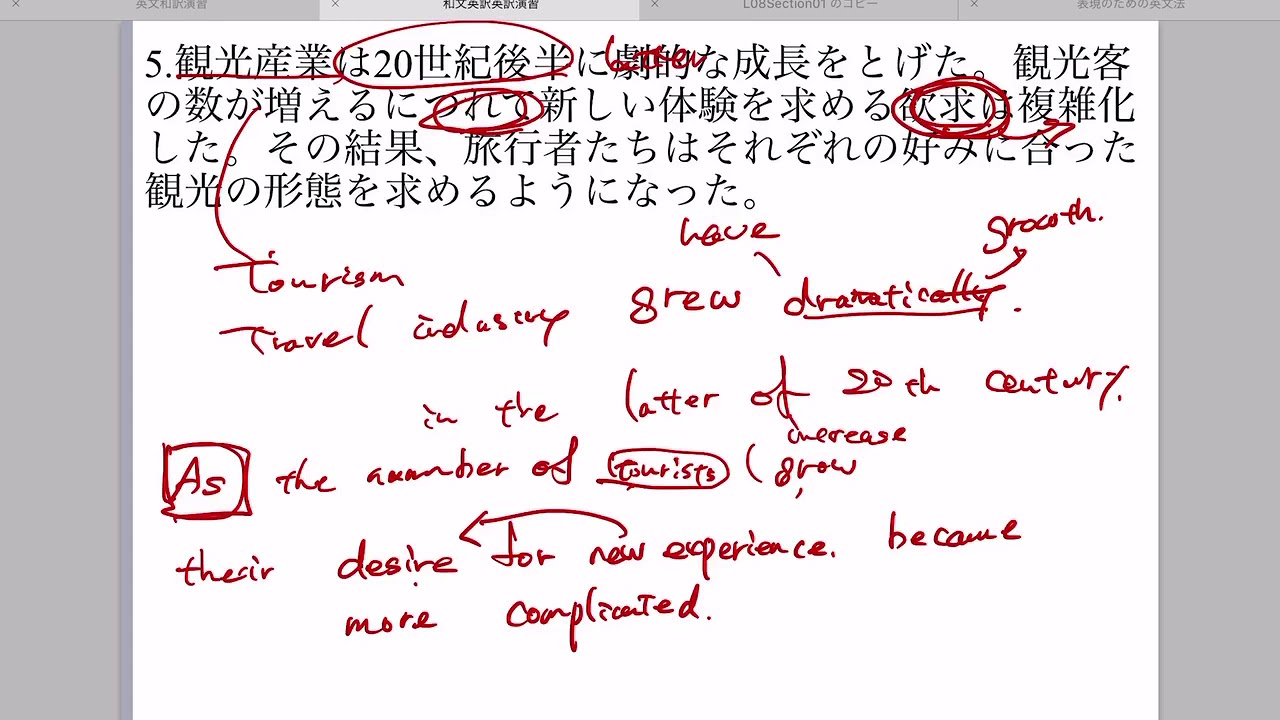 英文和訳演習
和文英訳英訳演習
L08Section01 のコピー
表現のための英文法
5.観光産業は20世紀後半に劇的な成長をとげた。観光客
の数が増えるにつれて新しい体験を求める欲求は複雑化
した。その結果、旅行者たちはそれぞれの好みに合った
観光の形態を求めるようになった。
have
growth.
Tourism
Travel grew dramatically.
in the latter of 20th century.
increase
As the number of tourists (grow
their desire for new experience. became
more complicated.